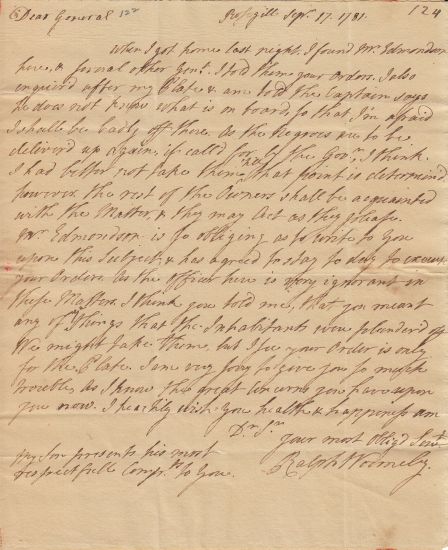 Dear General 122 Rosegill Sepr. 17. 1781. 124
When I got home last night, I found Mr. Edmondson
here, & several other Gent. I told them your Orders. I also
enquired after my Plate & am told the Captain says
he does not know what is on board, so that I'm afraid
I shall be badly off there. As the Negroes are to be
deliver'd up again, if called for by the Govr. I think
I had better not take them, till that point is determined
however. The rest of the Owners shall be acquainted
with the Matter, & they may Act as they please.
Mr. Edmondson is so obliging as to write to You
upon this Subject, & has agreed to stay to day to
your Orders. As the officer here is very ignorant in
these Matters. I think you told me, that you meant
any of the things that the Inhabitants were plunder'd of
We might take them, but I see your Order is only
for the Plate. I am very sorry to give you so much
trouble, as I know the great Concerns you have upon
you now. I heartily wish you health & happiness am
Dr. Sir
your most Oblig'd Servt.
Ralph Wormeley.
my Son presents his most
respectfull Comps. to You.